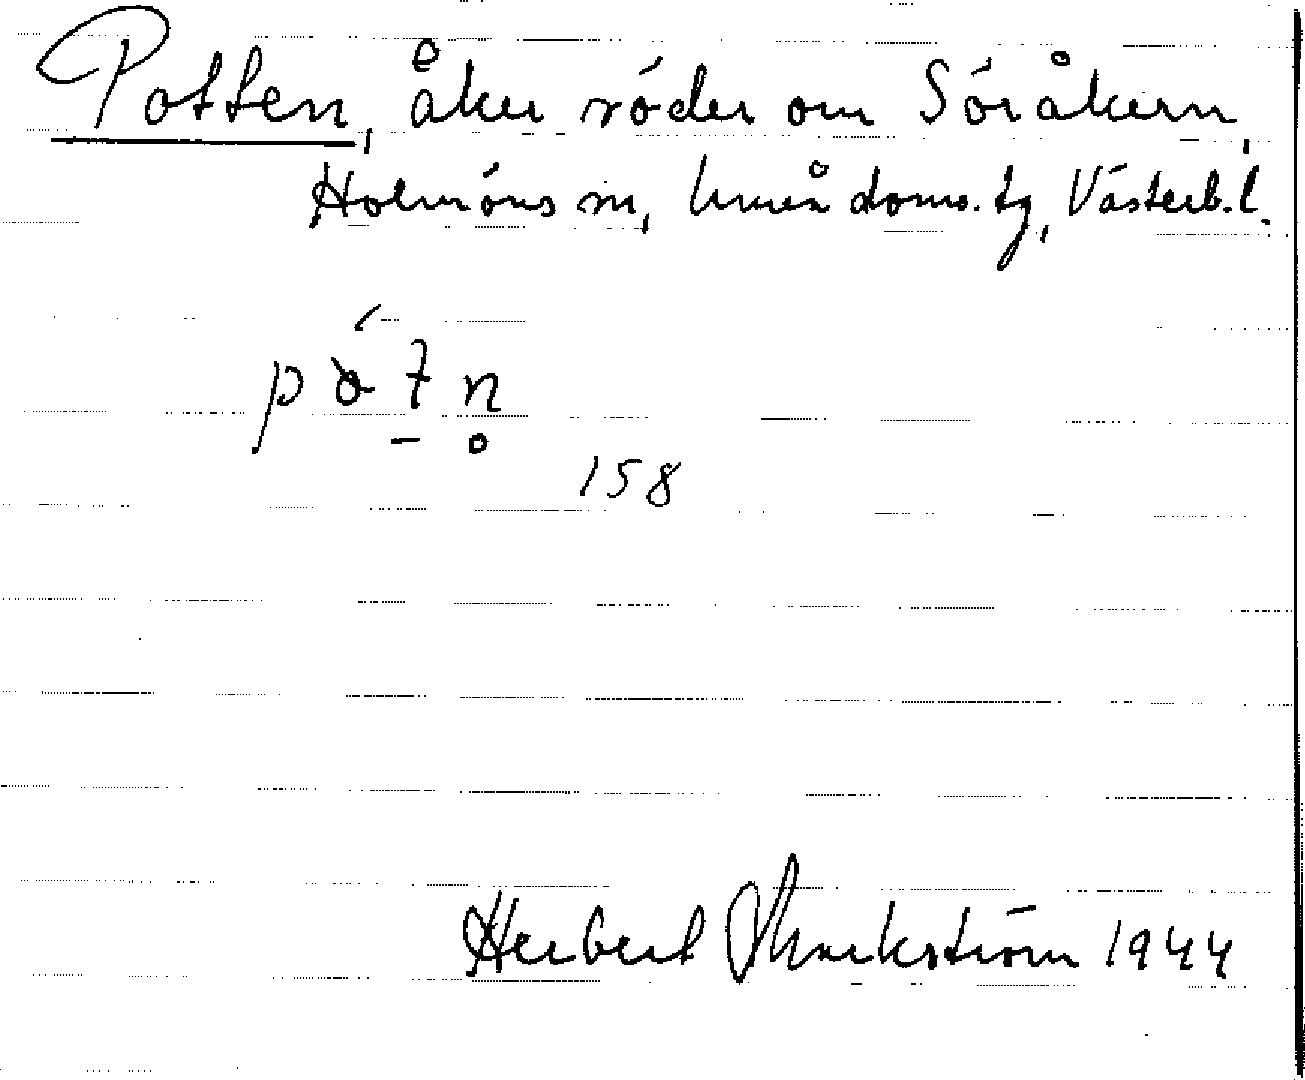 Potten, åker söder om Söråkern,
Holmöns sn, Umeå doms. tg, Västerb. l.
pȯ́tn̥
158
Herbert Markström 1944